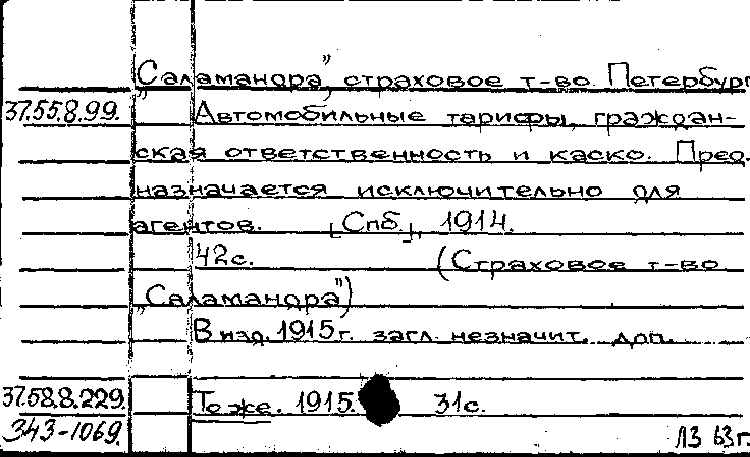 „Саламандра", страховое т-во. Петербург
37.55.8.99. Автомобильные тарифы, граждан-
ская ответственность и каско. Пред-
назначается исключительно для
агентов. [Спб.], 1914.
42с. (Страховое т-во
„Саламандра")
В изд. 1915г. загл. незначит. доп.
37.58.8.229. То же. 1915. 31с.
343-1069.
ЛЗ 63г.